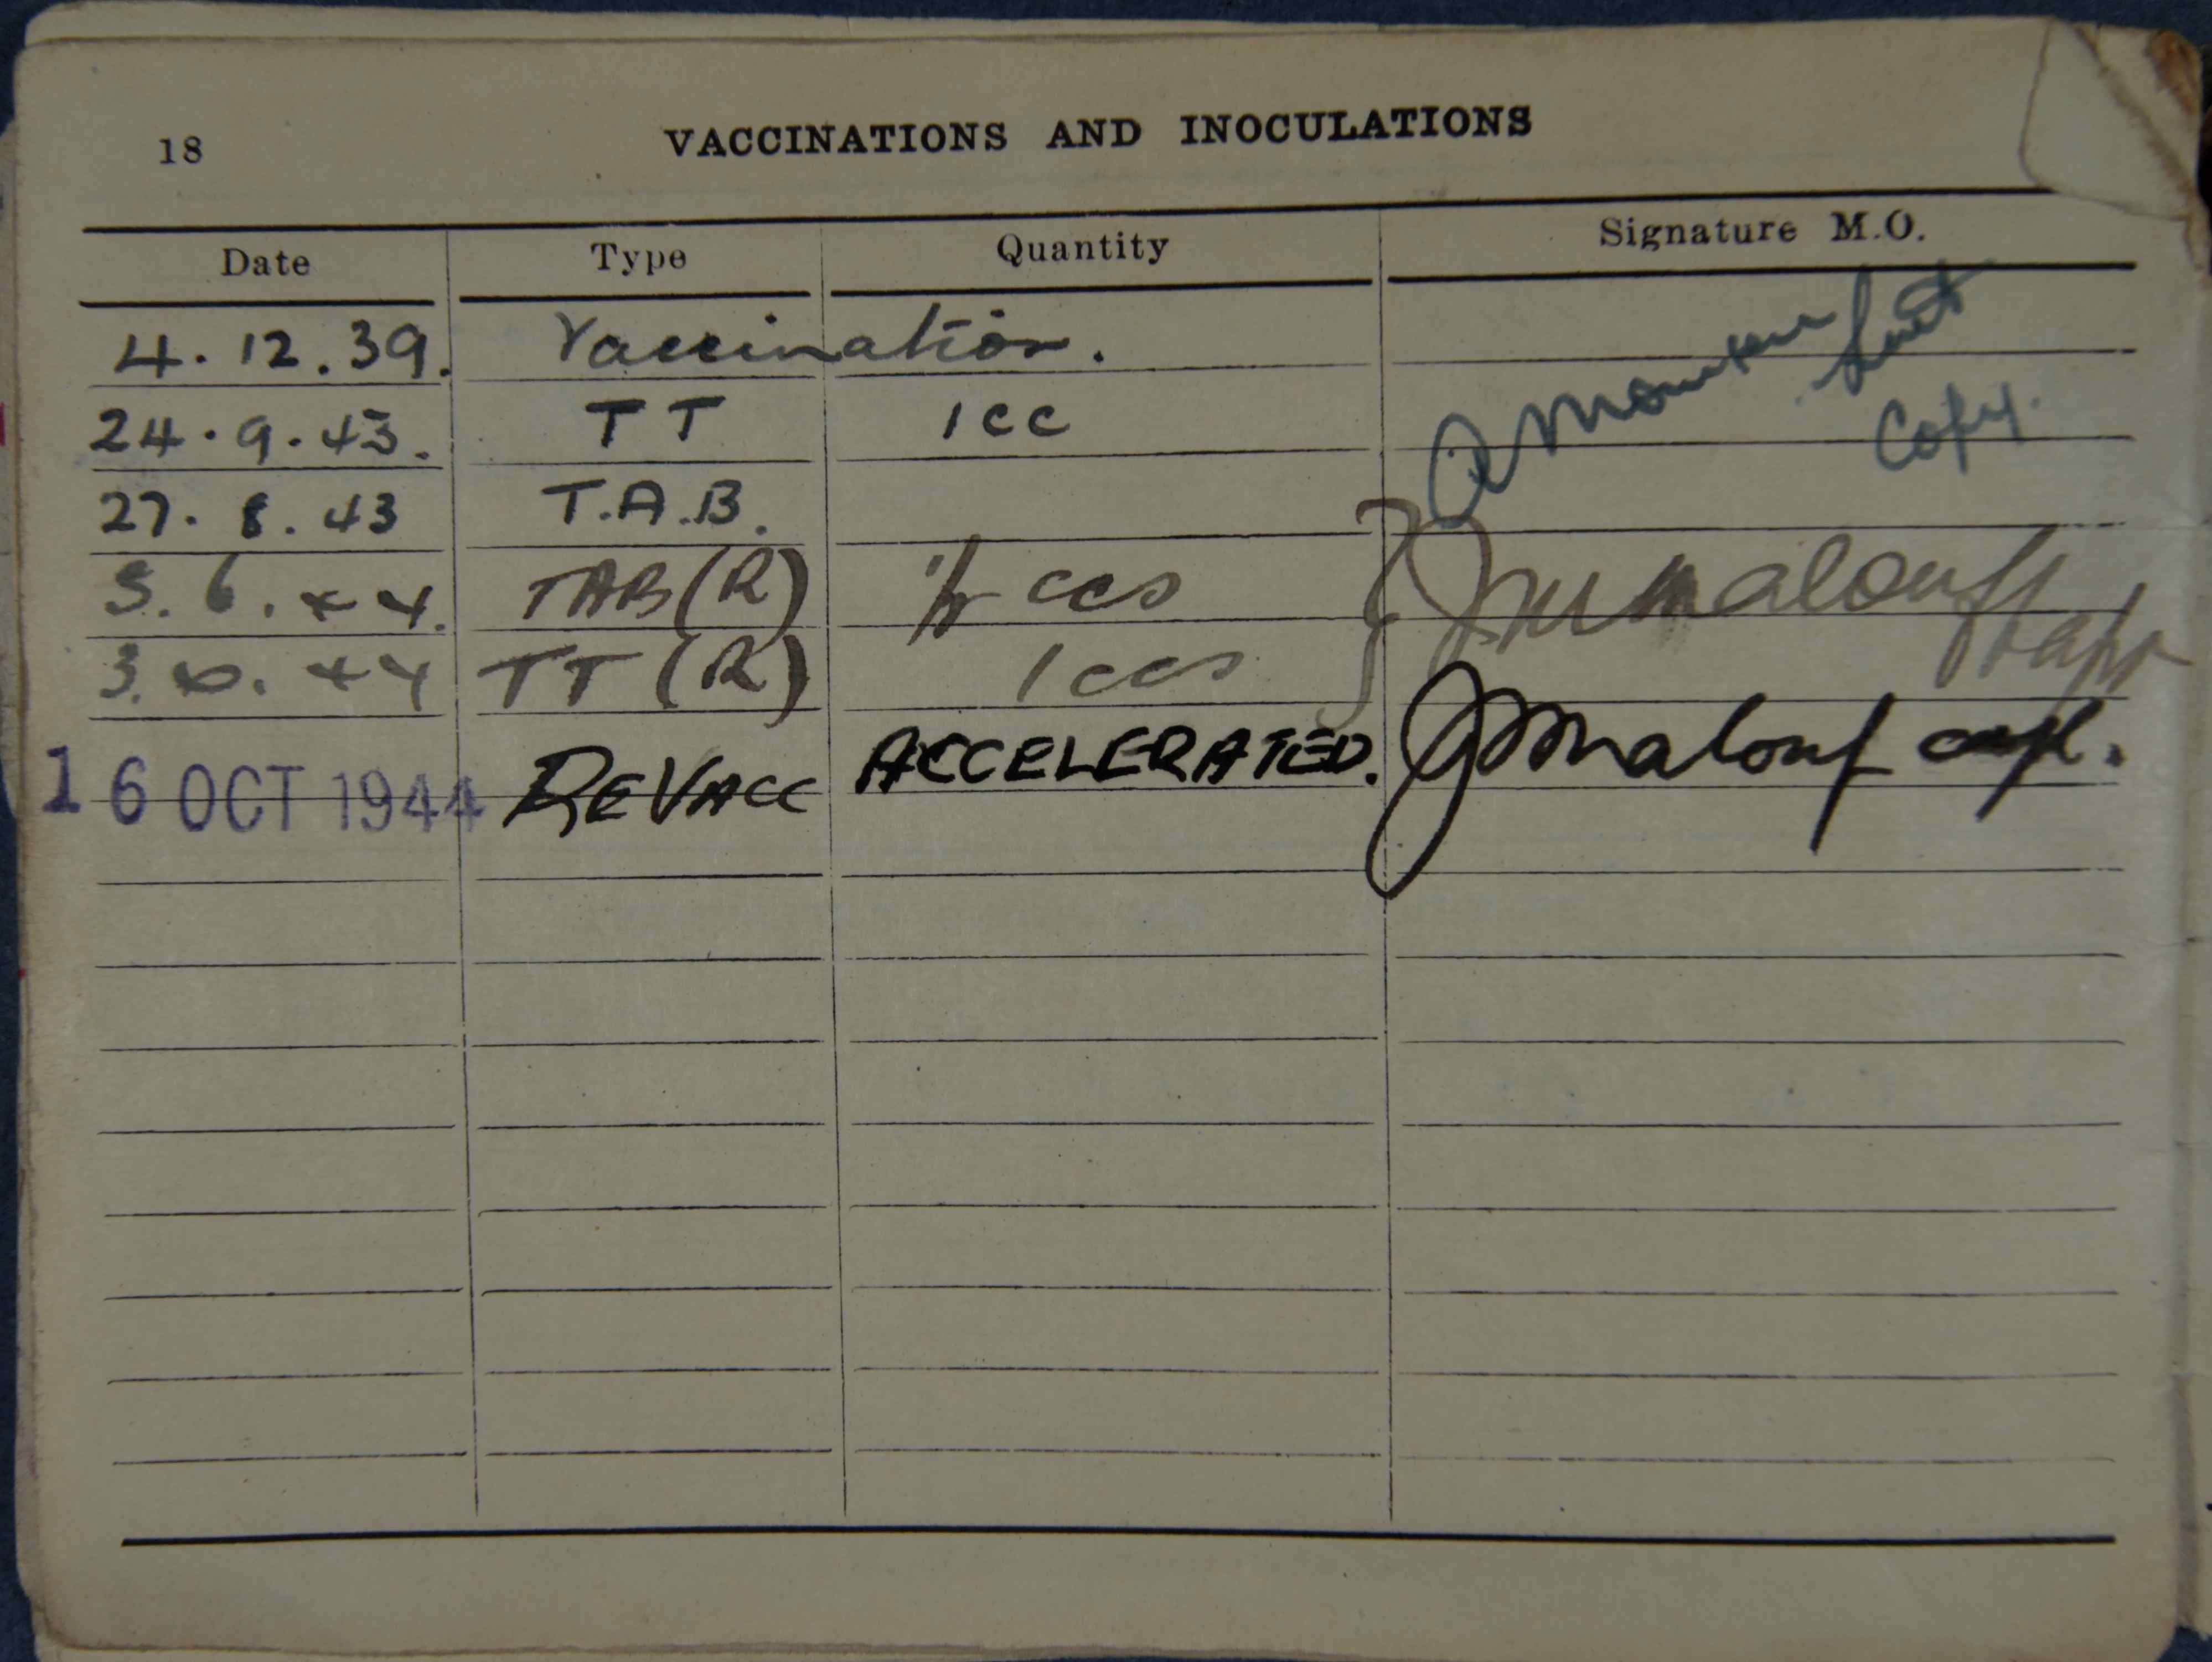 18 VACCINATIONS AND INOCULATIONS
Date Type Quantity Signature M.O.
4.12.39. Vaccination.
24.9.43. TT 1cc
Copy.
27.8.43 T.A.B.
6.44. TAB(R) ccs Malouf Capt
3. 44 TT(R) 1ccs
16 OCT 1944 REVACC ACCELERATED. Malouf capt.